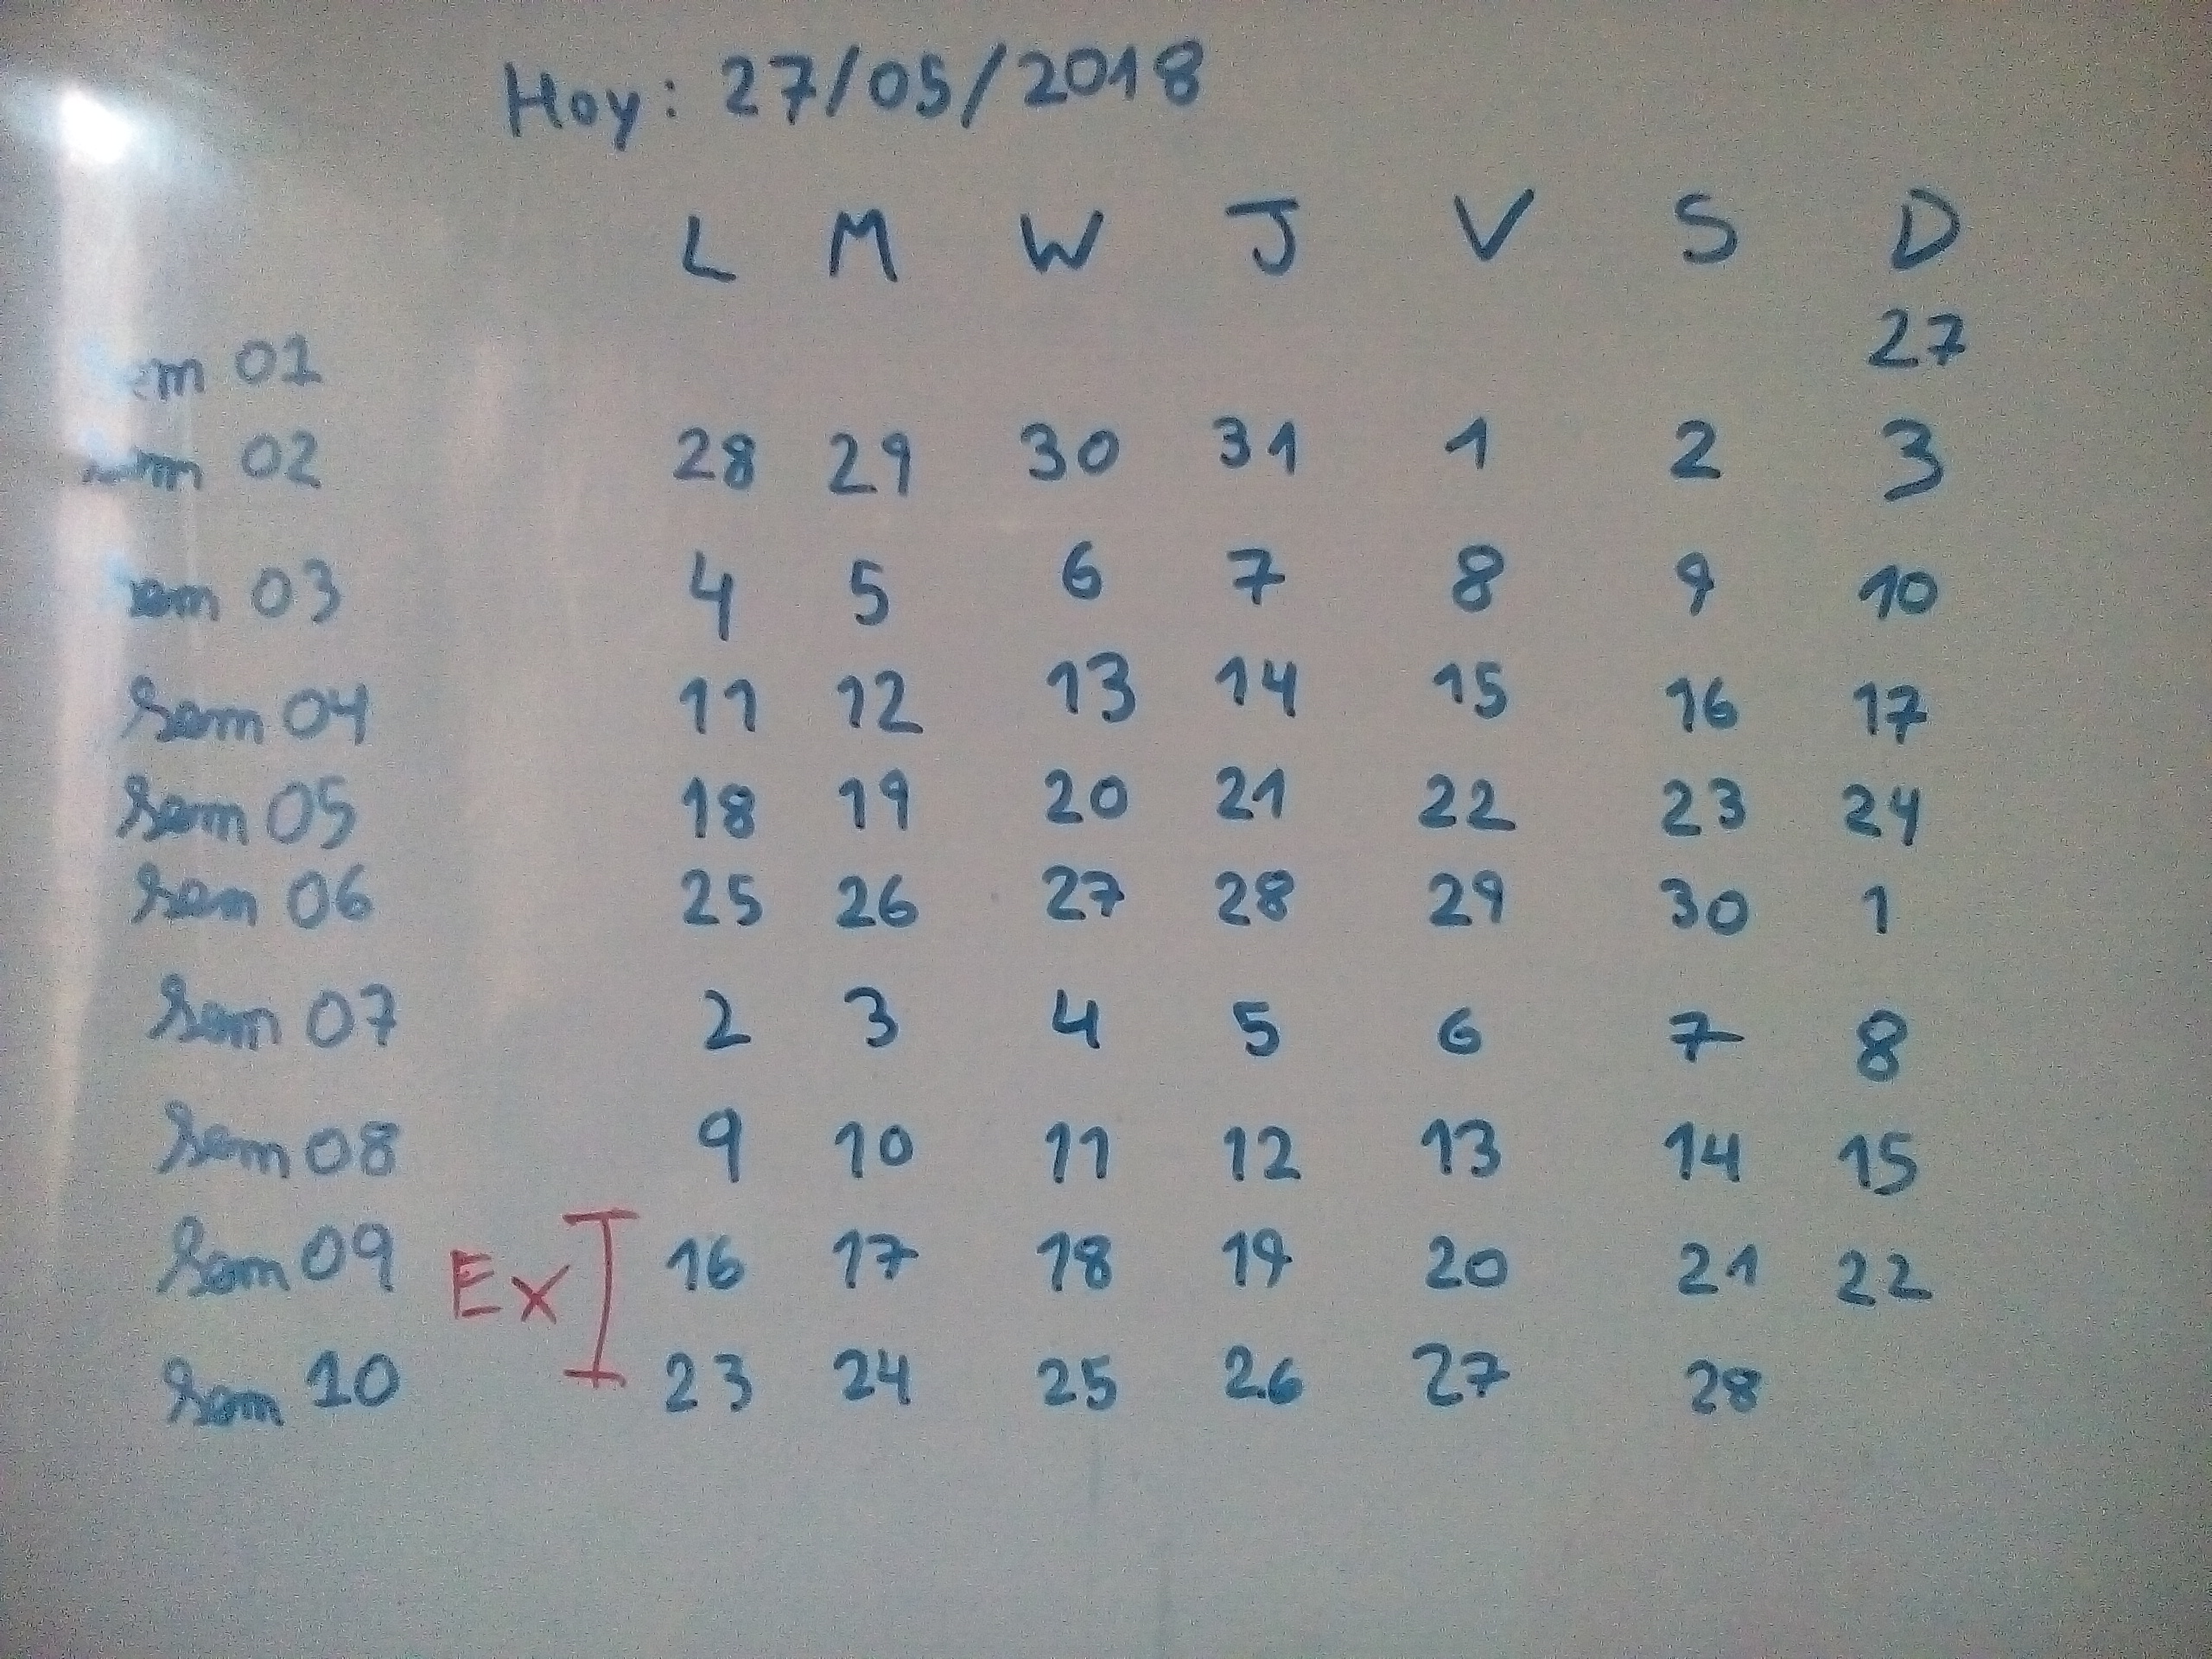 Hoy: 27/05/2018
L M W J V S D
Sem 01 27
Sem 02 28 29 30 31 1 2 3
Sem 03 4 5 6 7 8 9 10
Sem 04 11 12 13 14 15 16 17
Sem 05 18 19 20 21 22 23 24
Sem 06 25 26 27 28 29 30 1
Sem 07 2 3 4 5 6 7 8
Sem 08 9 10 11 12 13 14 15
Sem 09 Ex 16 17 18 19 20 21 22
Sem 10 23 24 25 26 27 28